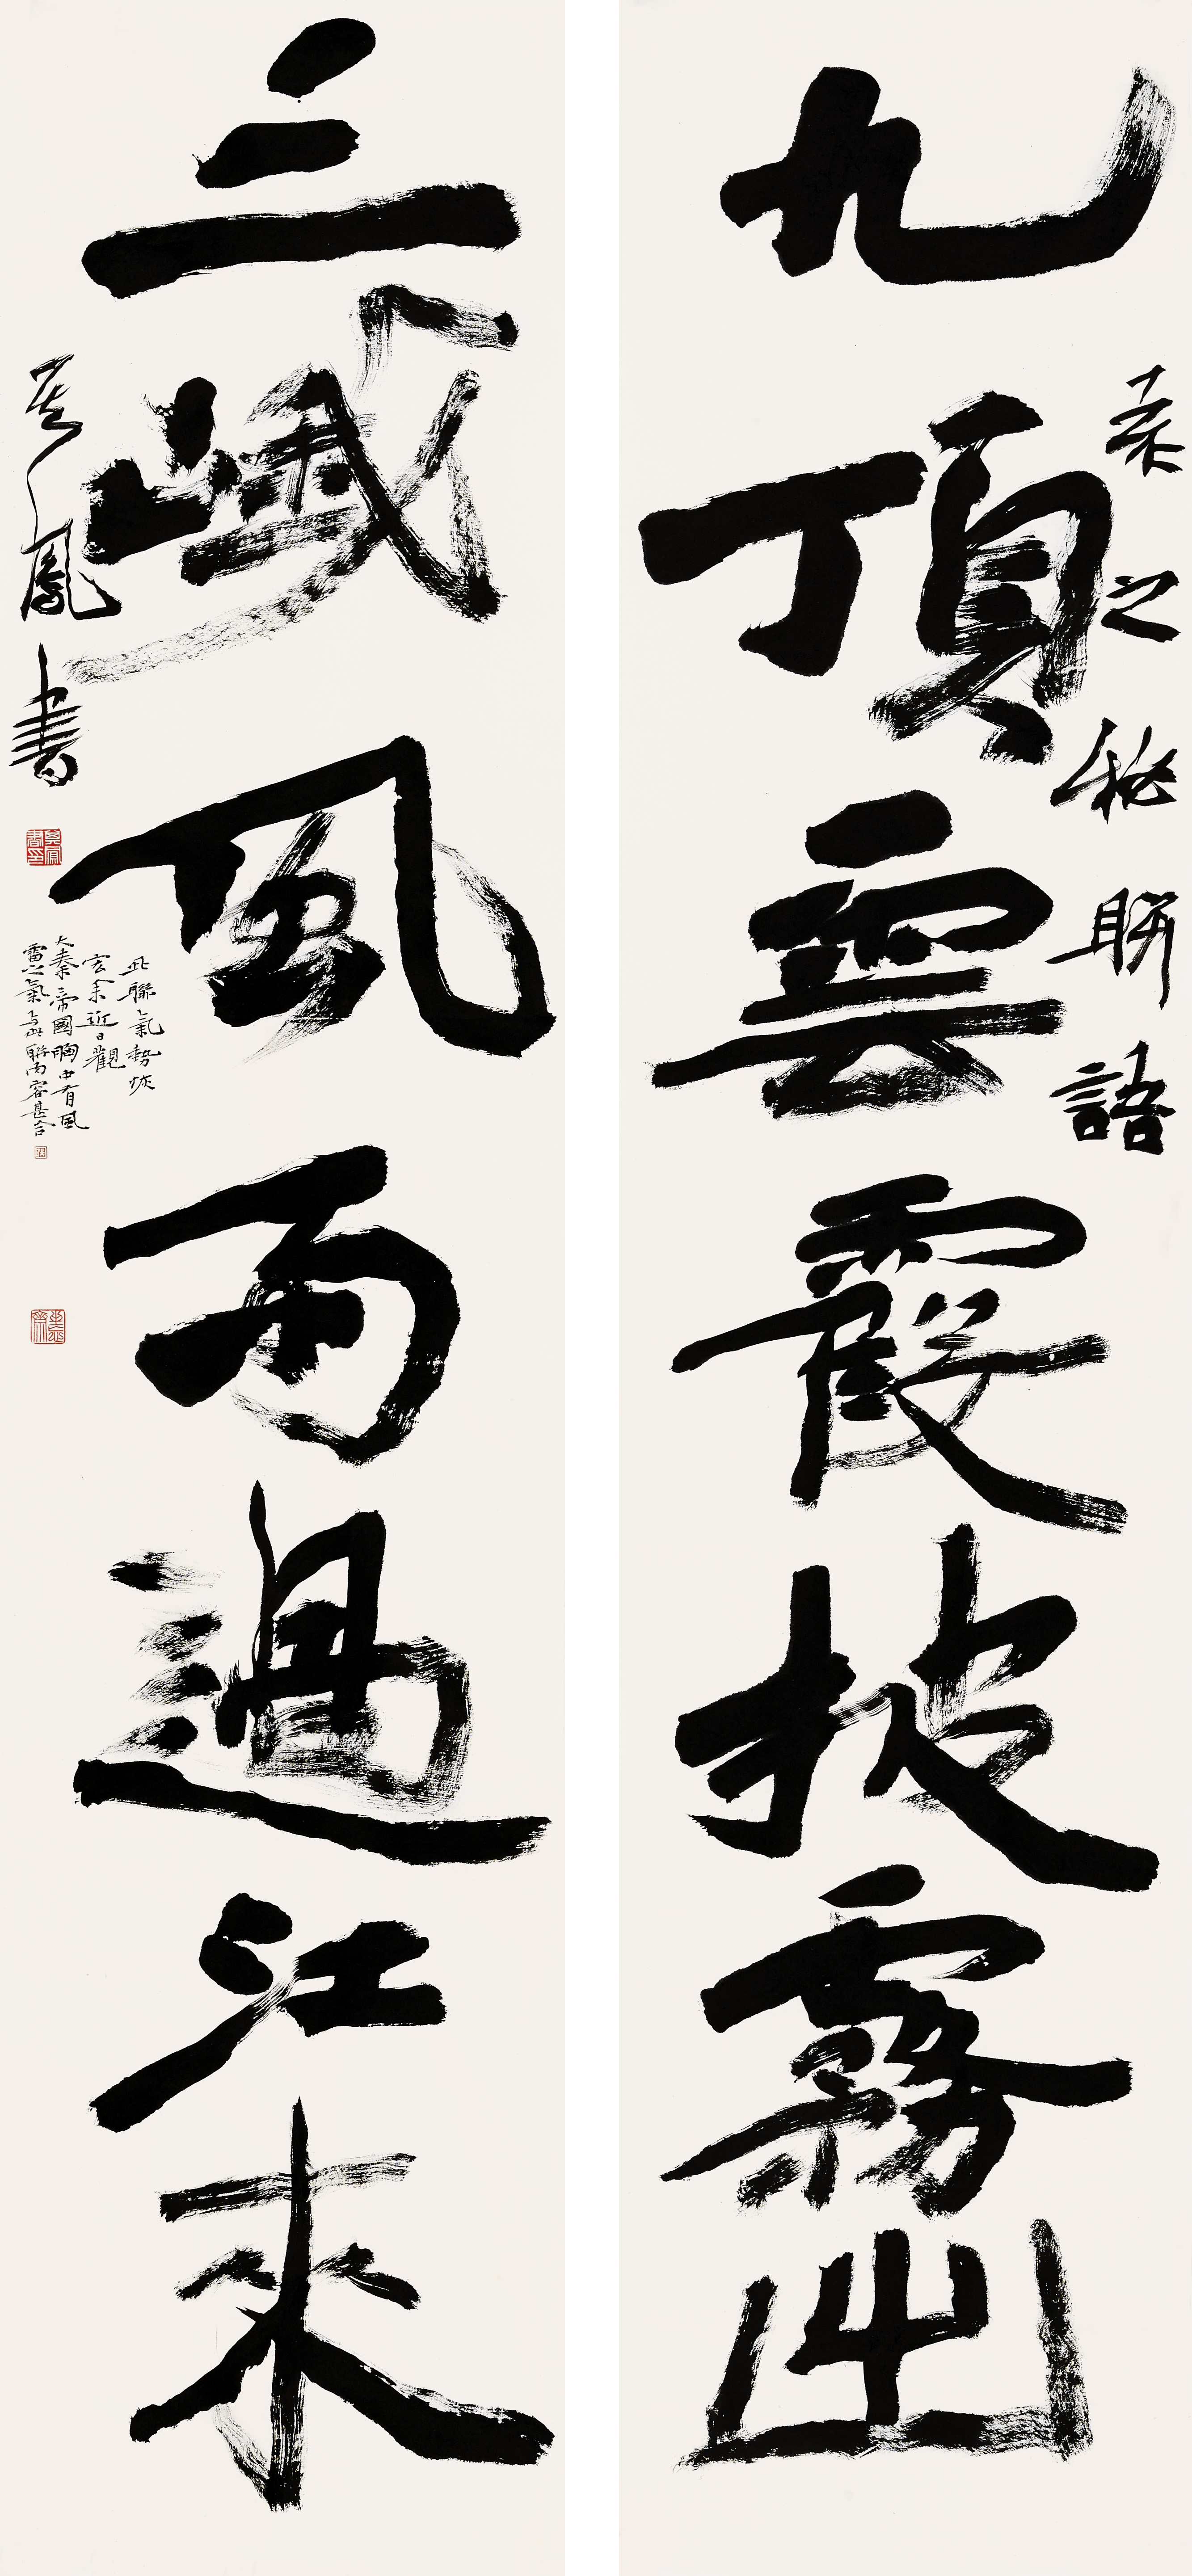 九頂雲霞披霧出
袁之秘聯語
三峨風雨過江來
鳳書
此聯氣勢恢
宏余近日觀
大秦帝國胸中有風
雷之氣與此聯內容甚合